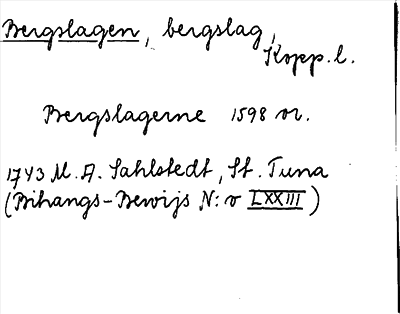 Bergslagen, bergslag,
Kopp. l.
Bergslagerne 1598 or.
1743 M. A. Sahlstedt, St. Tuna
(Bihangs-Bewijs N:o LXXIII)